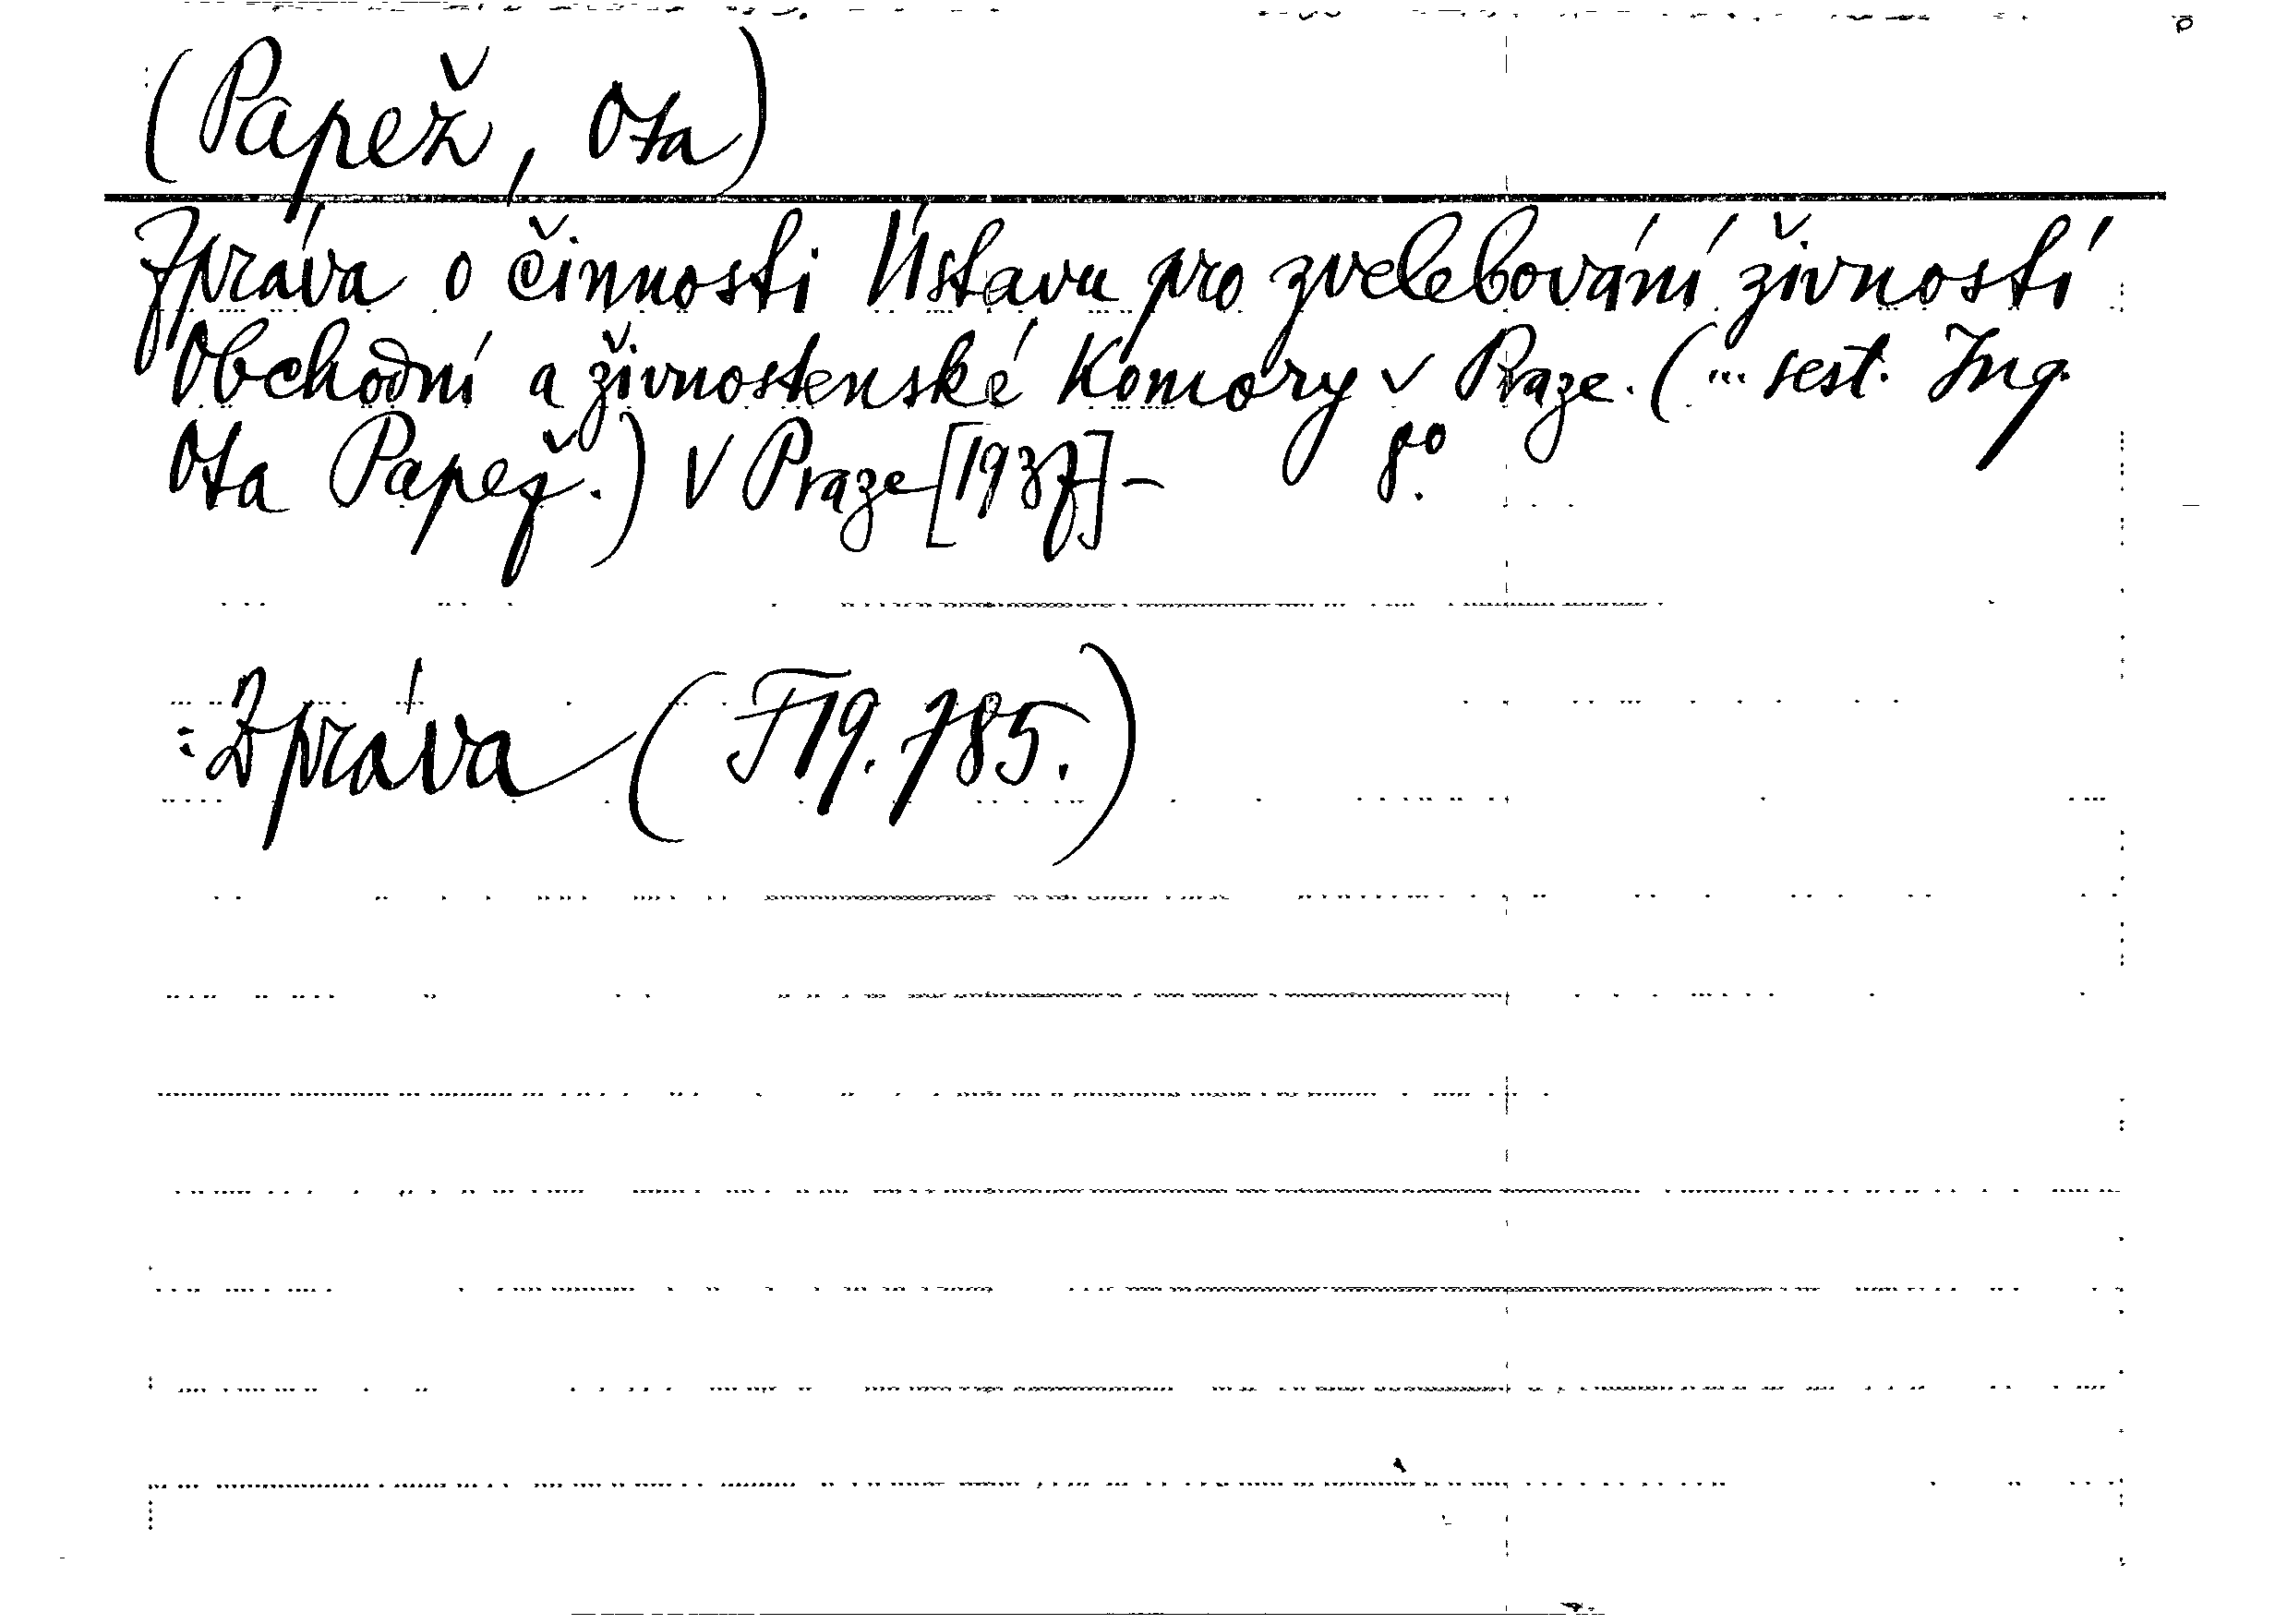 (Papež, Ota)
Zpráva o činnosti Ústavu pro zvelebování živností
Obchodní a živnostenské Komory v Praze. (... sest. Ing.
Ota Papež.) V Praze [1937] - 8°.
: Zpráva (F19.785.)